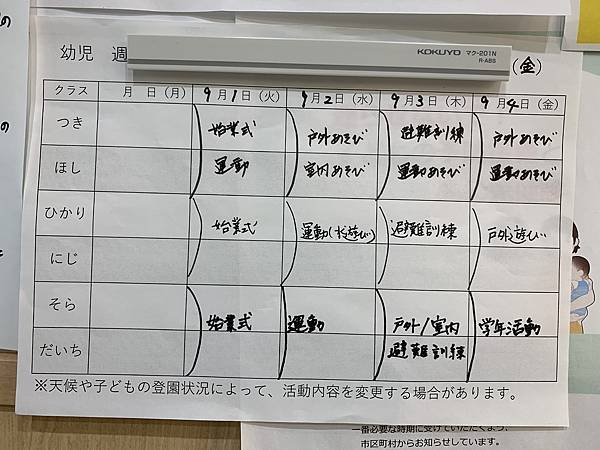 の
KOKUYO マク-201N
R-ABS
幼児 週
(金)
クラス 月 日(月) 9月1日(火) 9月2日(水) 9月3日(木) 9月4日(金)
つき 始業式 戸外あそび 避難訓練 戸外あそび
ほし 運動 室内あそび 運動あそび 運動あそび
ひかり 始業式 運動(水遊び) 避難訓練 戸外遊び
にじ
そら 始業式 運動 戸外/室内 学年活動
だいち 避難訓練
※天候や子どもの登園状況によって、活動内容を変更する場合があります。
一番必要な時期に受けていただくよう、
市区町村からお知らせしています。